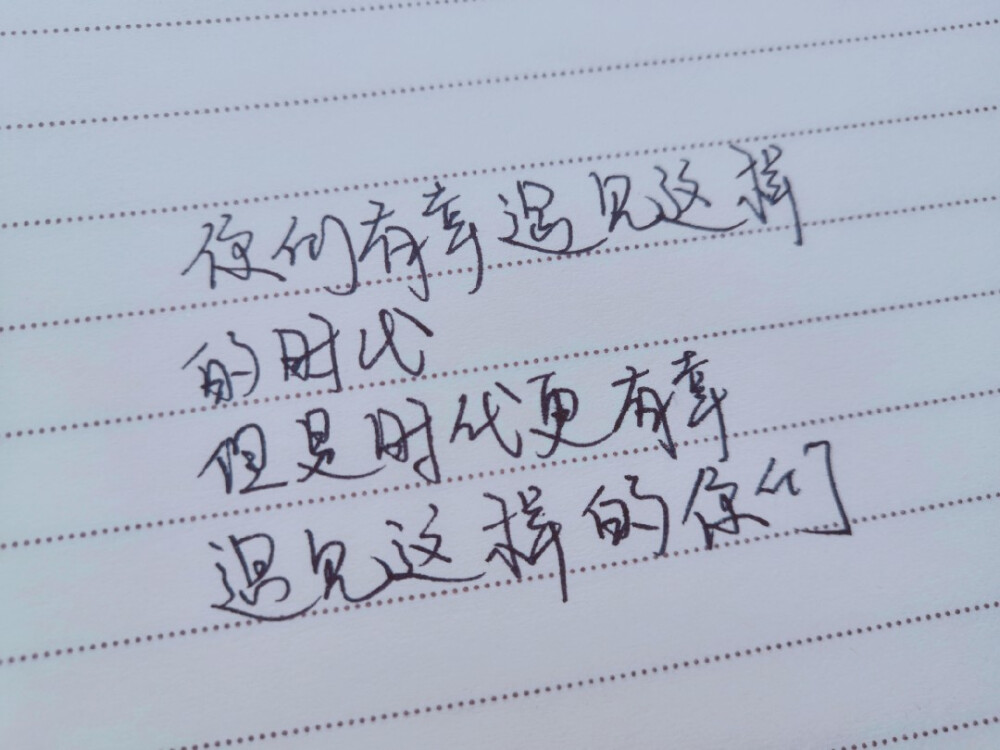 你们有幸遇见这样
的时代
但是时代更有幸
遇见这样的你们